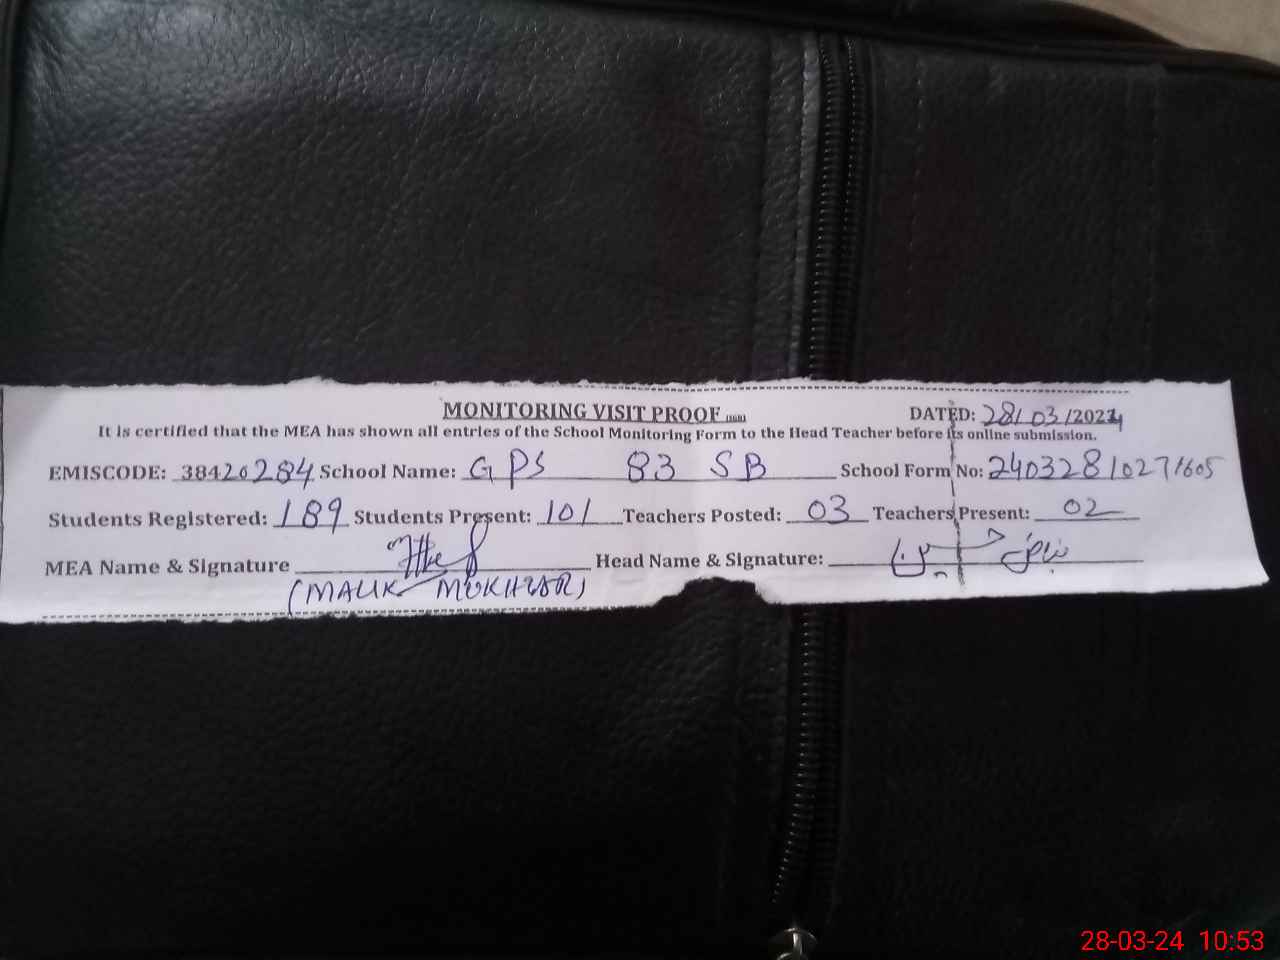 MONITORING VISIT PROOF
DATED: 28/03/2024
It is certified that the MEA has shown all entries of the School Monitoring Form to the Head Teacher before its online submission.
EMISCODE: 38420284 School Name: GPS 83 SB School Form No: 24032810271605
Students Registered: 189 Students Present: 101 Teachers Posted: 03 Teachers Present: 02
MEA Name & Signature Head Name & Signature:
(MALIK MUKHTAR)
28-03-24 10:53